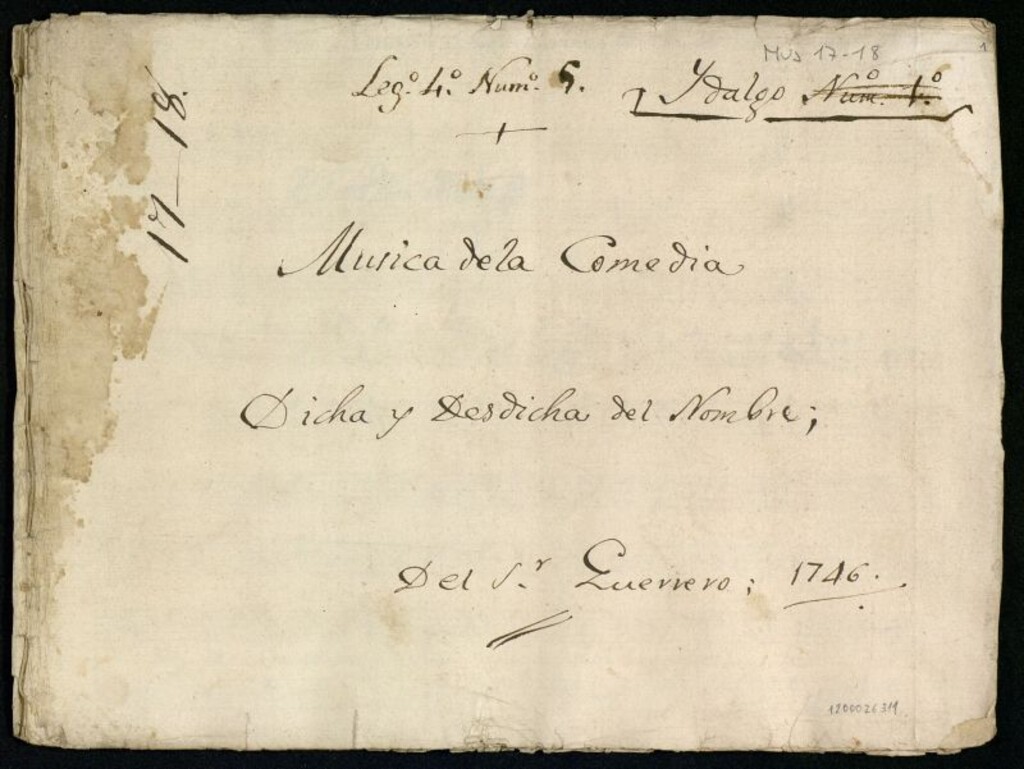 MUS 17-18
1
Leg.º 4.º Num.º 5. Ydalgo Num.º 1.º
17-18.
Musica dela Comedia
Dicha y Desdicha del Nombre;
Del S.r Guerrero; 1746.
1200026311